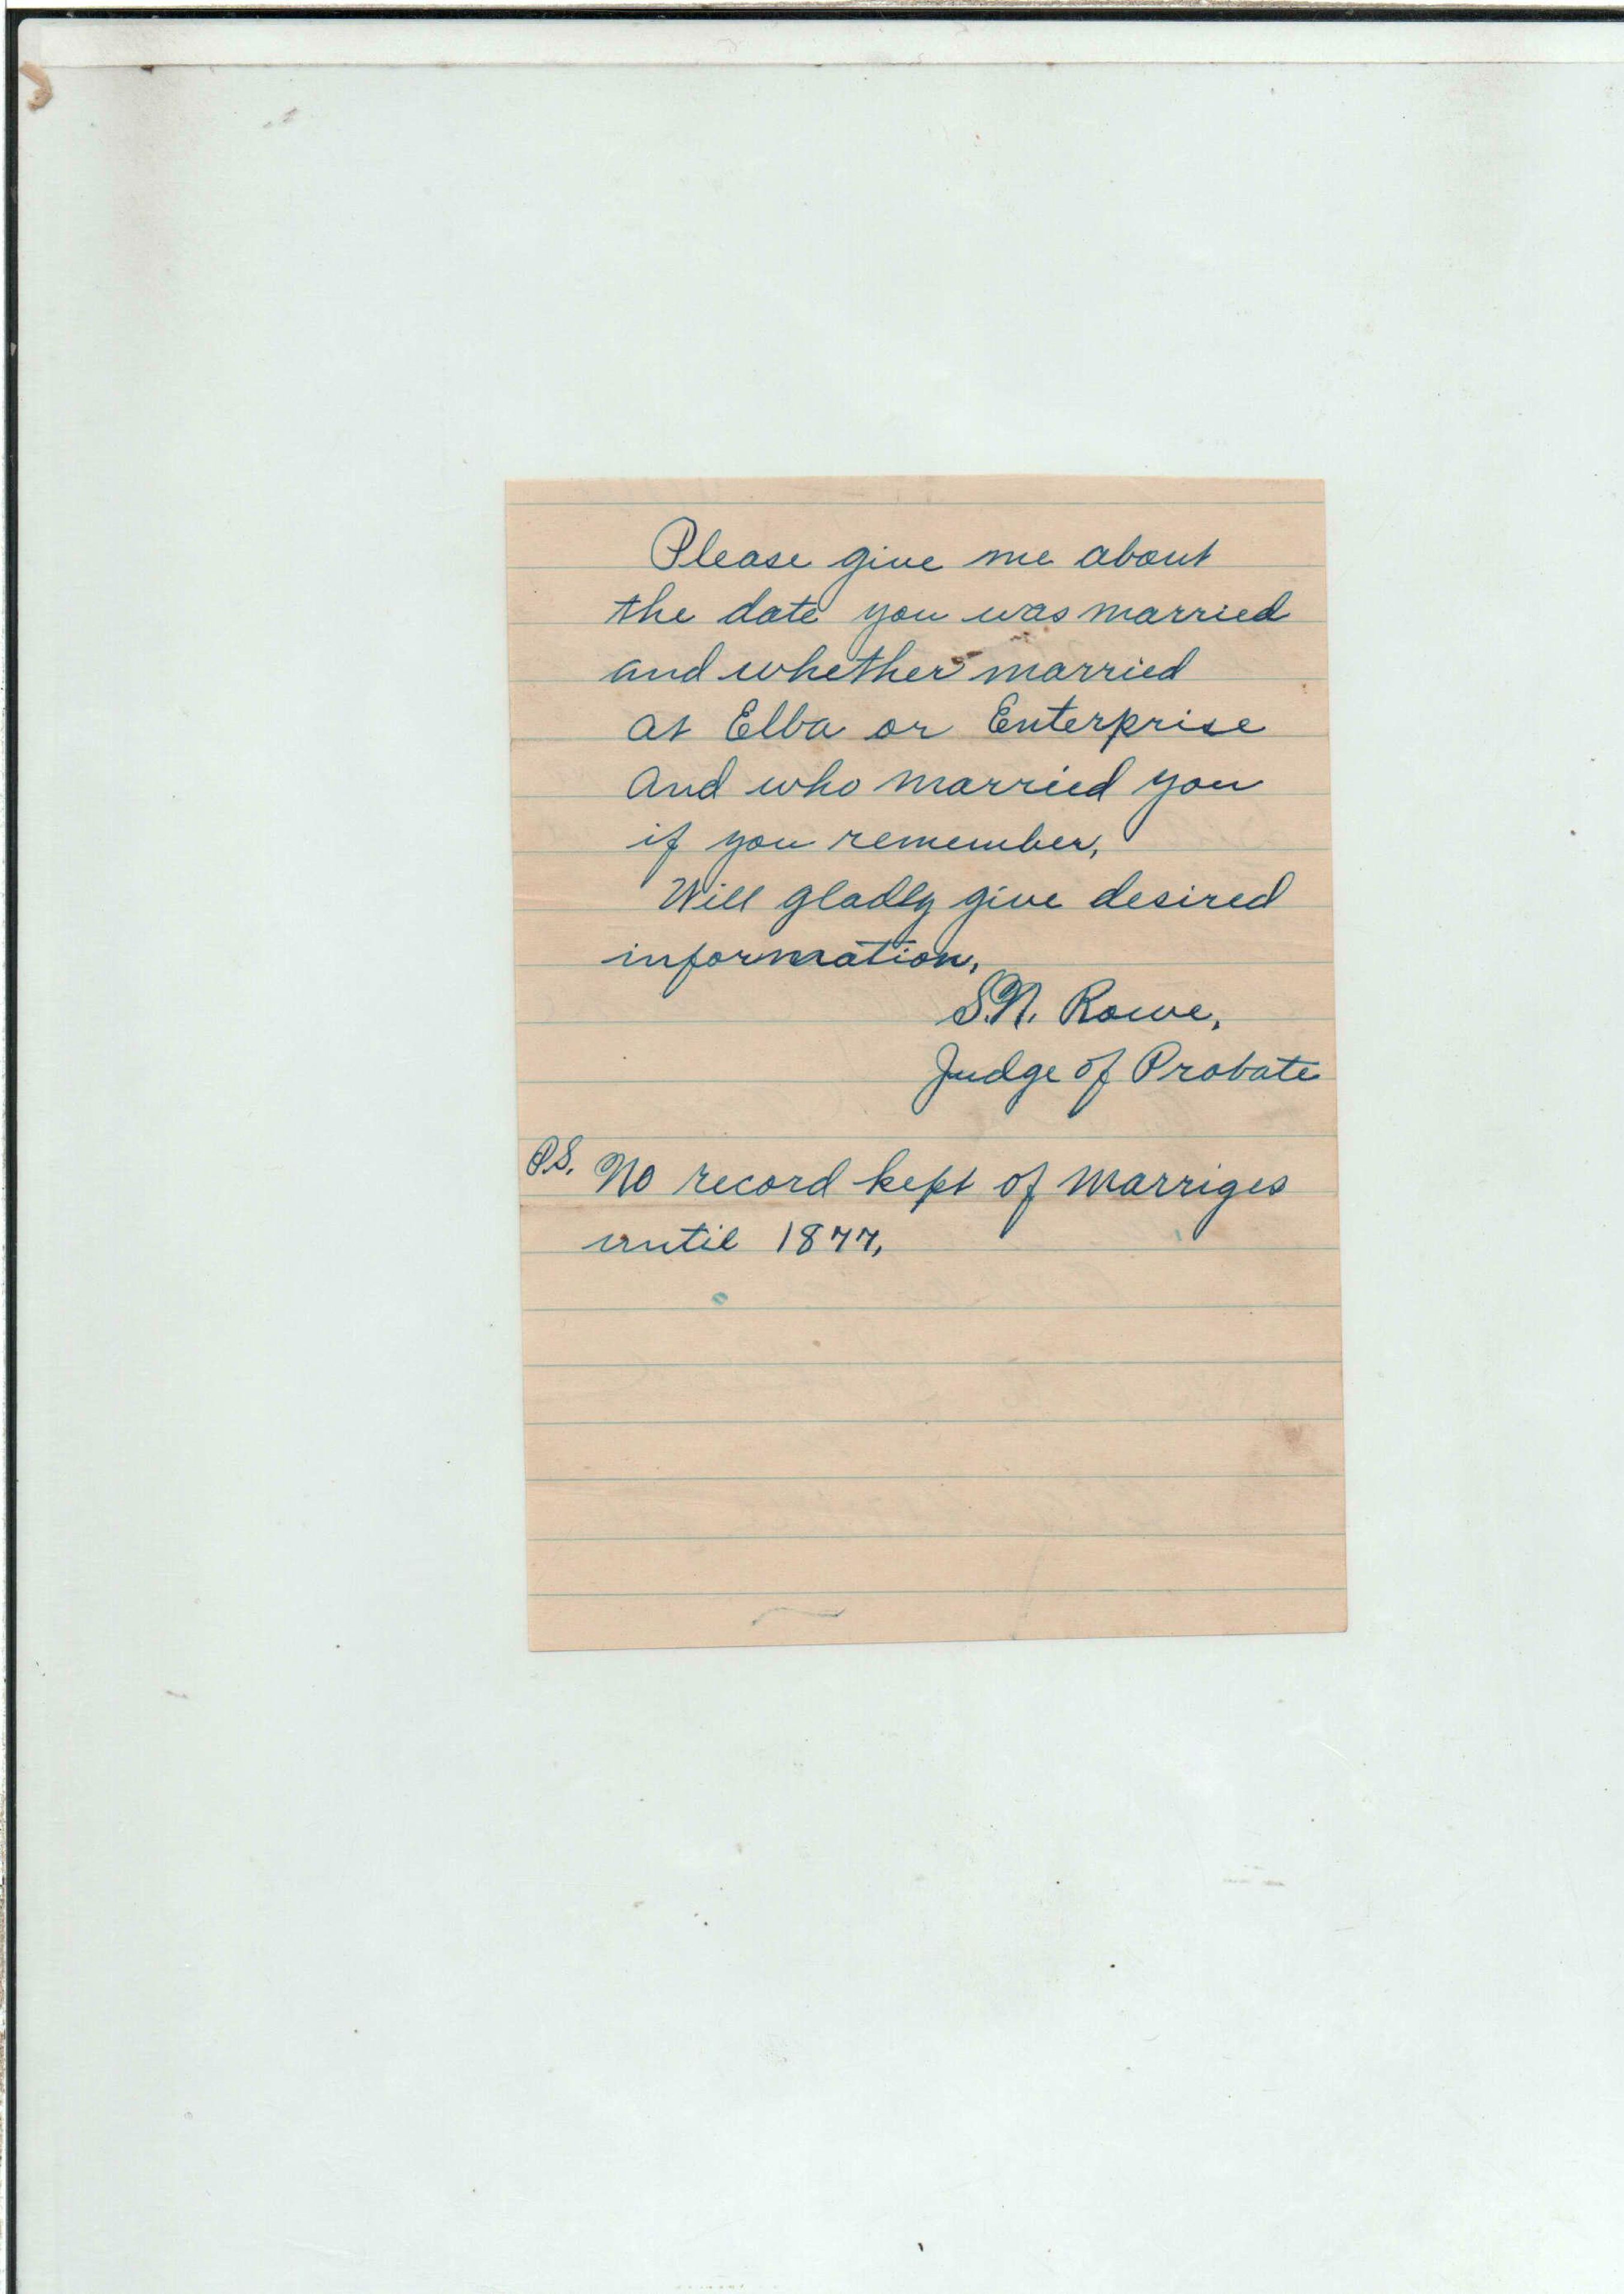 Please give me about
the date you was married
and whether married
at Elba or Enterprise
and who married you
if you remember,
Will gladly give desired
information,
S.N. Rowe,
Judge of Probate
P.S. No record kept of Marriges
until 1877,